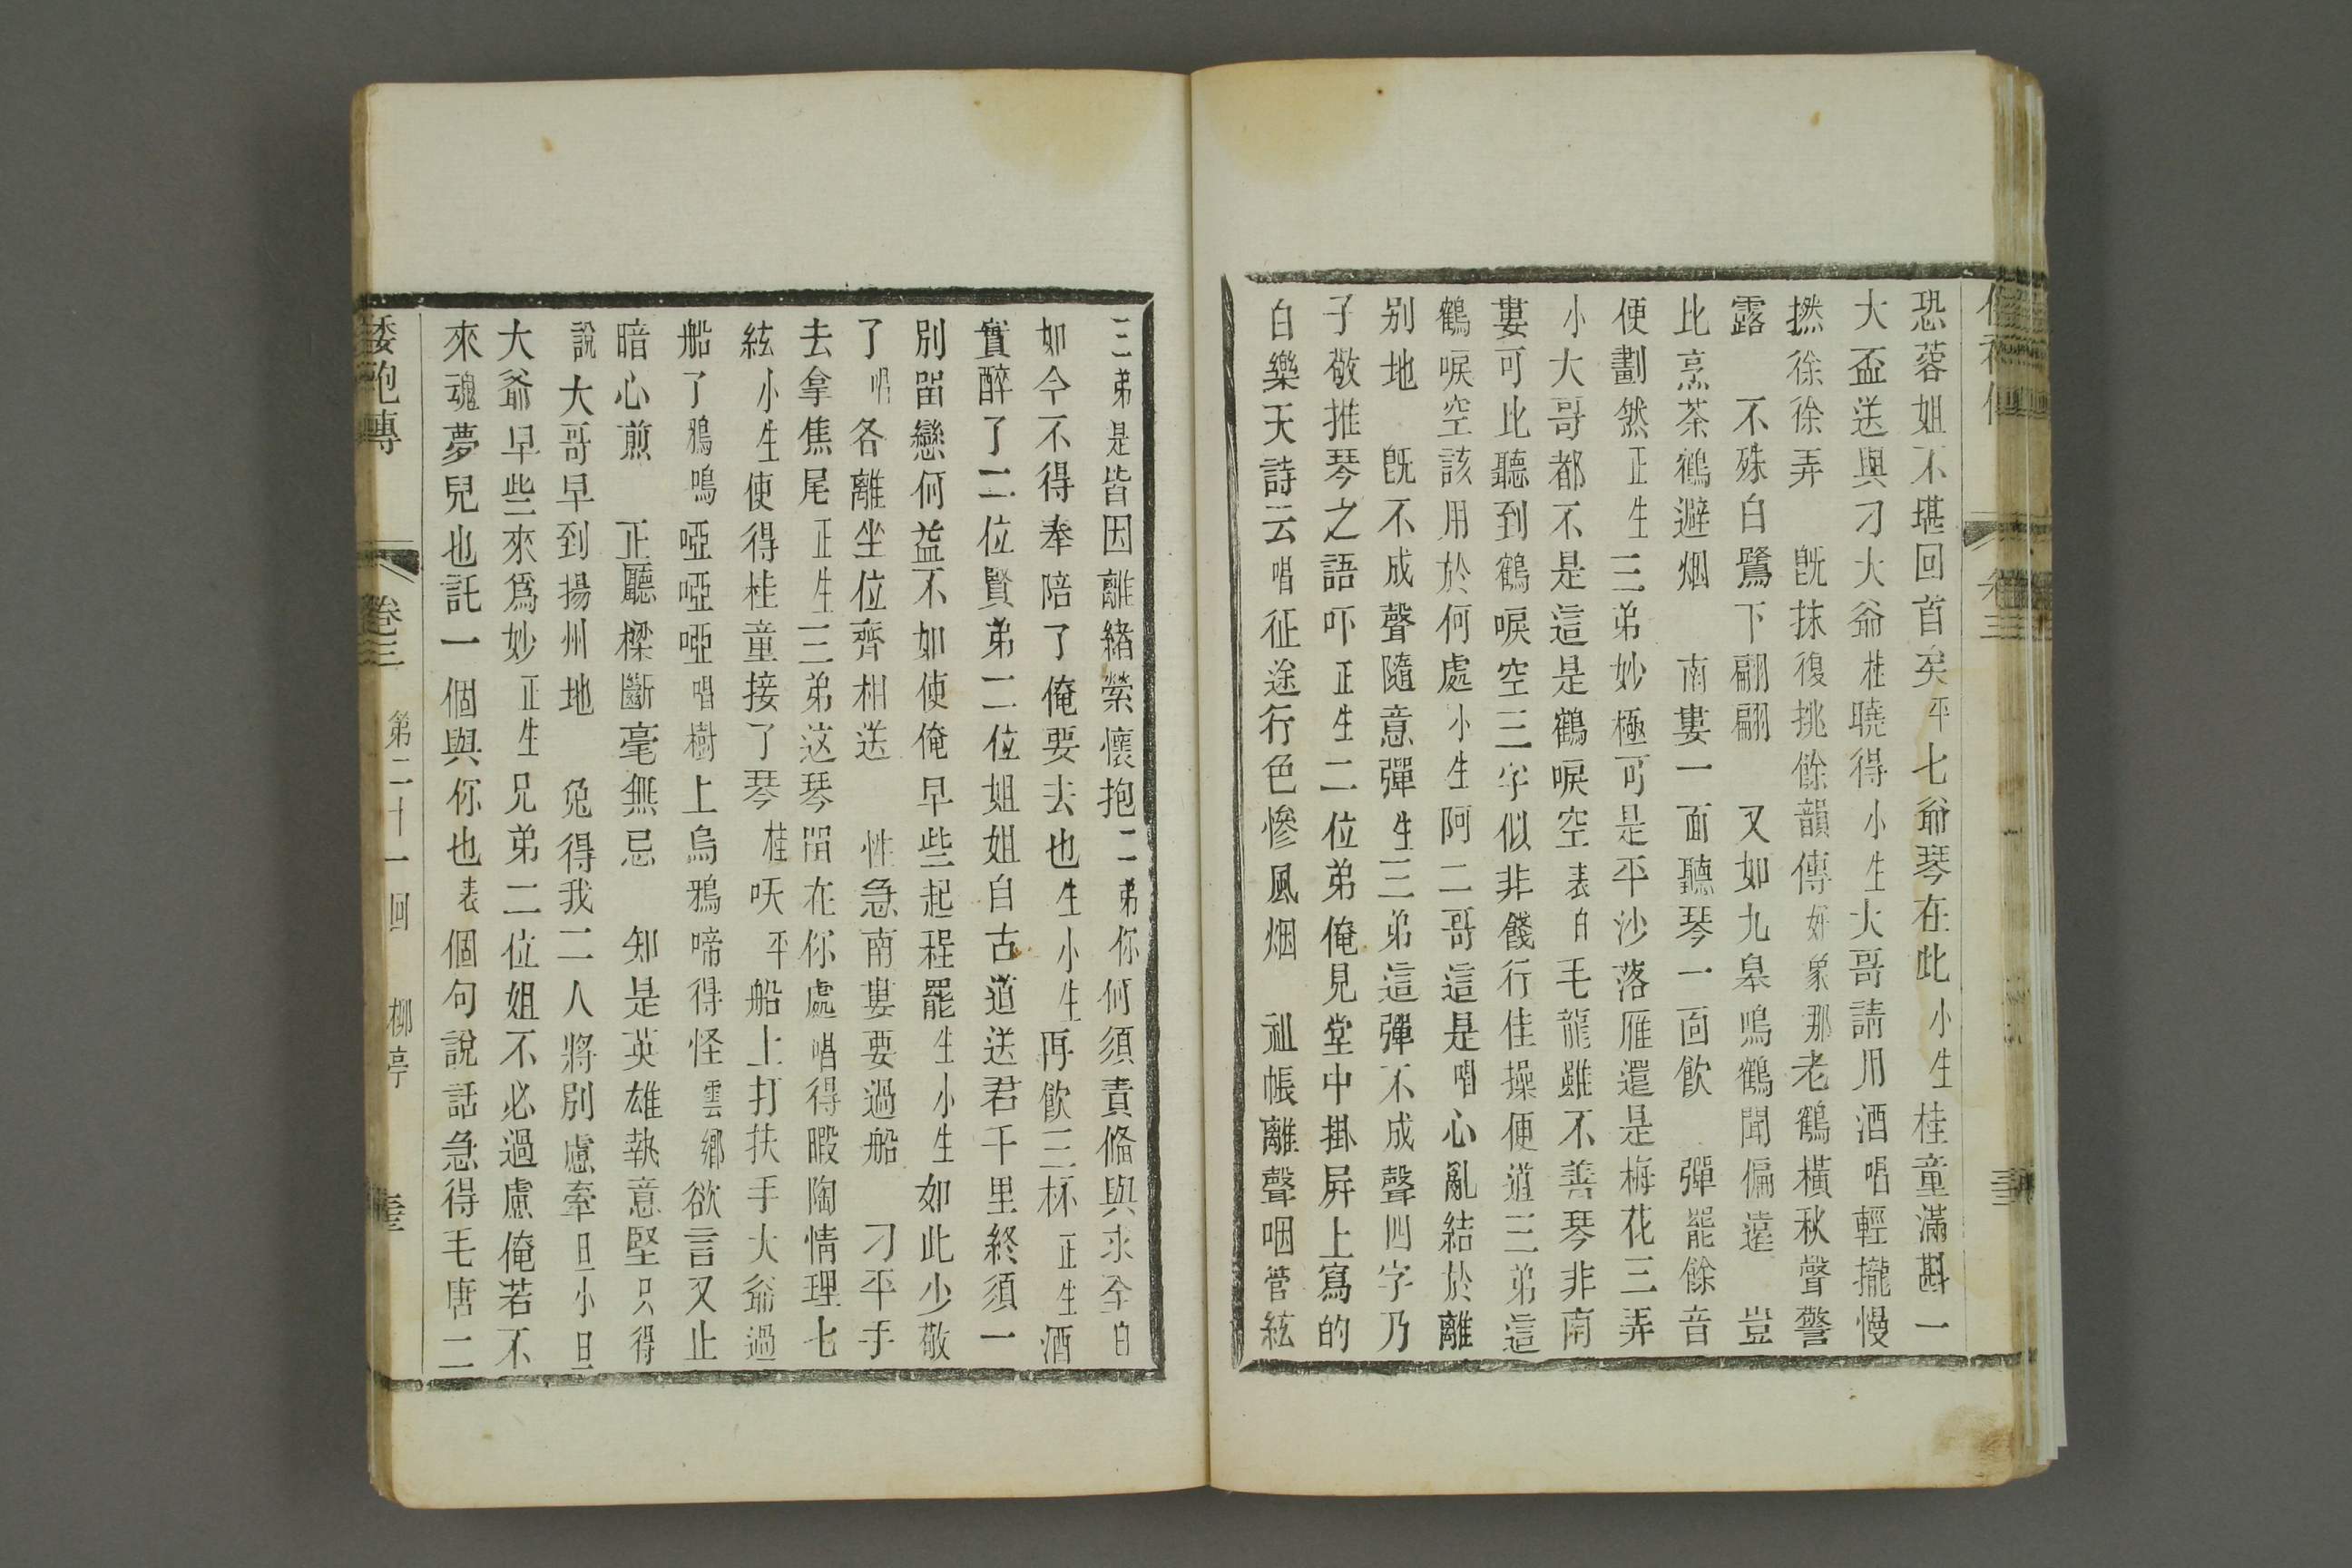 恐蓉姐不堪回首矣平七爺琴在此小生桂童滿斟一
大盃送與刁大爺桂曉得小生大哥請用酒唱輕攏慢
撚徐徐弄 既抹復挑餘韻傳好象那老鶴橫秋聲警
露 不殊白鷺下翩翩 又如九皋鳴鶴聞偏遠 豈
比烹茶鶴避烟 南婁一面聽琴一面飲 彈罷餘音
便劃然正生三弟妙極可是平沙落雁還是梅花三弄
小大哥都不是這是鶴唳空表白毛龍雖不善琴非南
婁可比聽到鶴唳空三字似非餞行佳操便道三弟這
鶴唳空該用於何處小生阿二哥這是唱心亂結於離
别地 既不成聲隨意彈生三弟這彈不成聲四字乃
子敬推琴之語吓正生二位弟俺見堂中掛屏上寫的
白樂天詩云唱征途行色慘風烟 祖帳離聲咽管絃
三弟是皆因離緒縈懷抱二弟你何須責偹與求全白
如今不得奉陪了俺要去也生小生再飲三杯正生酒
實醉了二位賢弟二位姐姐自古道送君千里終須一
別畱戀何益不如使俺早些起程罷生小生如此少敬
了唱各離坐位齊相送 性急南婁要過船 刁平手
去拿焦尾正生三弟这琴畱在你處唱得暇陶情理七
絃小生使得桂童接了琴桂吷平船上打扶手大爺過
船了鴉鳴啞啞啞唱樹上烏鴉啼得怪雲鄉欲言又止
暗心煎 正聽樑斷毫無忌 知是英雄執意堅只得
說大哥早到揚州地 免得我二人將別慮牽旦小旦
大爺早些來爲妙正生兄弟二位姐不必過慮俺若不
來魂夢兒也託一個與你也表個句說話急得毛唐二
倭袍傳 卷三 第二十一回 柳亭